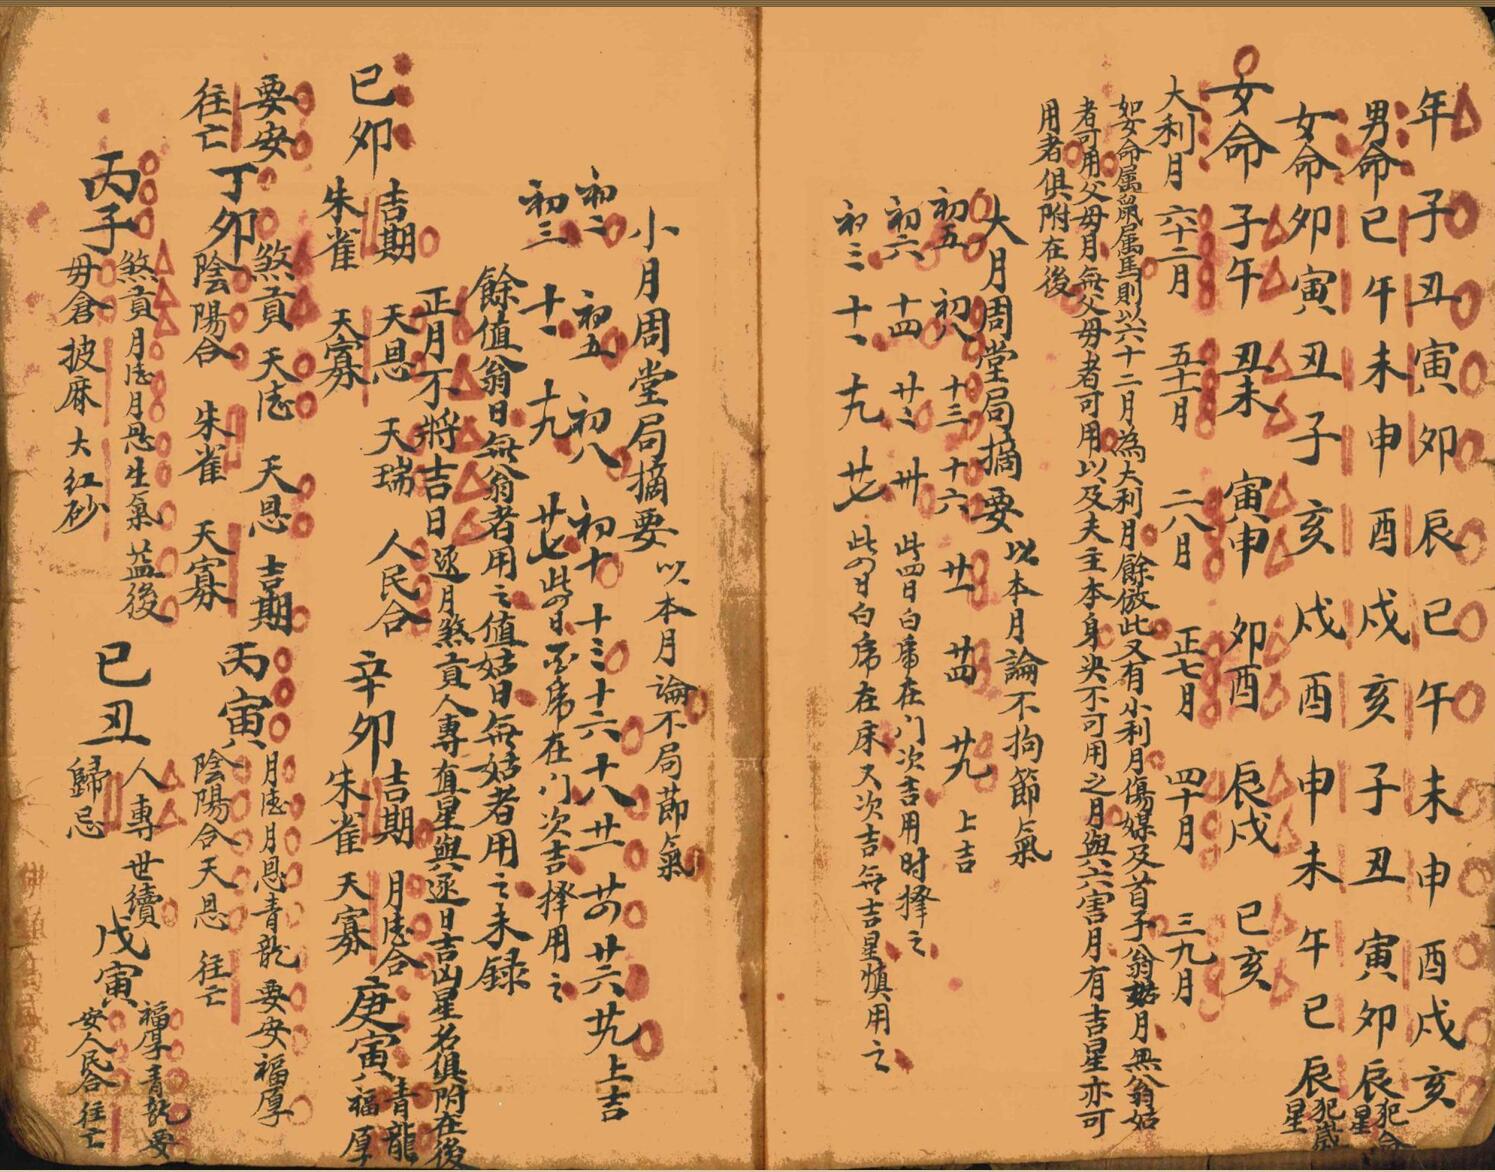 年 子 丑 寅 卯 辰 巳 午 未 申 酉 戌 亥
男命 巳 午 未 申 酉 戌 亥 子 丑 寅 卯 辰 犯命星
女命 卯 寅 丑 子 亥 戌 酉 申 未 午 巳 辰 犯歲星
女命 子午 丑未 寅申 卯酉 辰戌 巳亥
大利月 六十二月 五十一月 二八月 正七月 四十月 三九月
如女命属鼠属馬則以六十二月為大利月餘倣此又有小利月傷媒及首子翁姑月無翁姑
者可用父母月無父母者可用以及夫主本身决不可用之月與六害月有吉星亦可
用者俱附在後
大月周堂局摘要 以本月論不拘節氣
初五 初八 十三 十六 廿一 廿四 廿九 上吉
初六 十四 廿二 卅 此四日白虎在門次吉用时擇之
初三 十一 十九 廿七 此四日白虎在床又次吉無吉星慎用之
小月周堂局摘要 以本月論不局節氣
初二 初五 初八 初十 十三 十六 十八 廿一 廿四 廿六 廿九 上吉
初三 十一 十九 廿七 此四日白虎在门次吉擇用之
餘值翁日無翁者用之值姑日無姑者用之未録
正月不將吉日 逐月煞貢人專直星與逐日吉凶星名俱附在後
己卯 吉期 天恩 天瑞 人民合
朱雀 天寡
辛卯 吉期 月德合
朱雀 天寡
庚寅 青龍 福厚
要安
往亡
丁卯 煞貢 天德 天恩 吉期
陰陽合 朱雀 天寡
丙寅 月德月恩青龍要安福厚
陰陽合天恩 往亡
丙子 煞貢月德月恩生氣益後
毋倉披麻大紅砂
己丑 人專世續
歸忌
戊寅 福厚青龍要
安人民合往亡